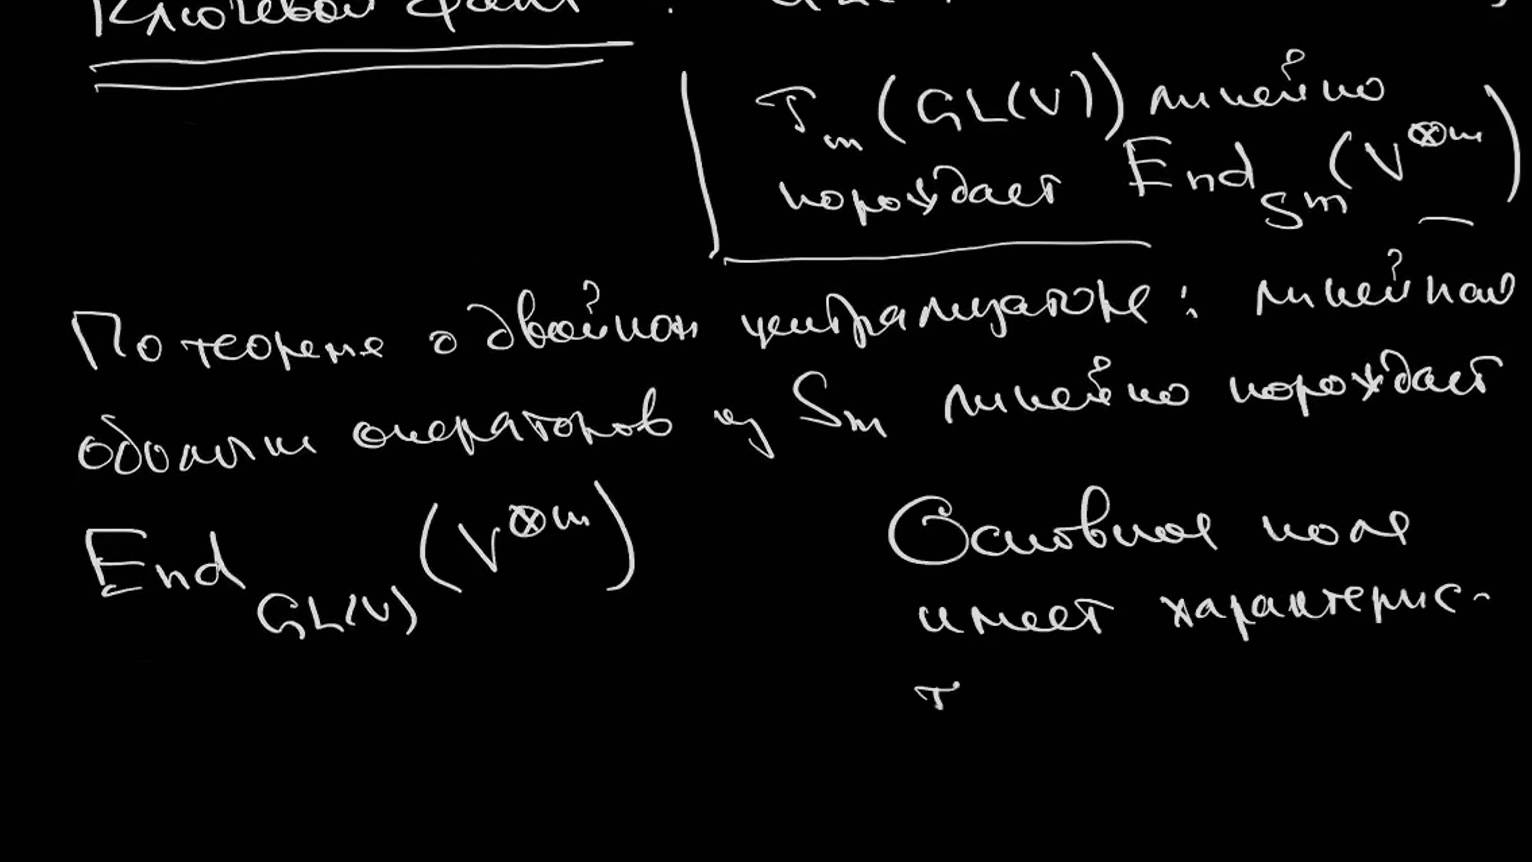 Ключевой факт :
T_m (GL(V)) линейно
порождает End_{S_m}(V^{⊗m})
По теореме о двойном централизаторе: линейная
оболочка операторов из S_m линейно порождает
End_{GL(V)}(V^{⊗m})
Основное поле
имеет характерис-
т